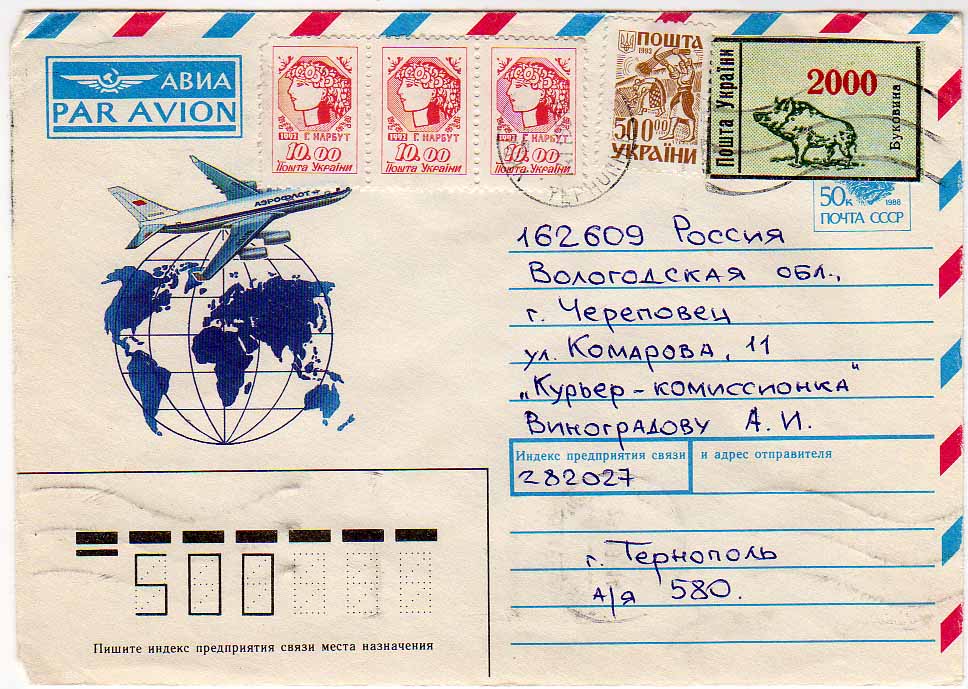 АВИА
PAR AVION
1992 Г. НАРБУТ
10.00
Пошта України
1992 Г. НАРБУТ
10.00
Пошта України
1992 Г. НАРБУТ
10.00
Пошта України
ПОШТА
1992
500.00
УКРАЇНИ
Пошта України
2000
Буковина
50к 1988
ПОЧТА СССР
АЭРОФЛОТ
162609 Россия
Вологодская обл.,
г. Череповец
ул. Комарова, 11
„Курьер-комиссионка"
Виноградову А. И.
Индекс предприятия связи и адрес отправителя
282027
г. Тернополь
а/я 580.
500
Пишите индекс предприятия связи места назначения